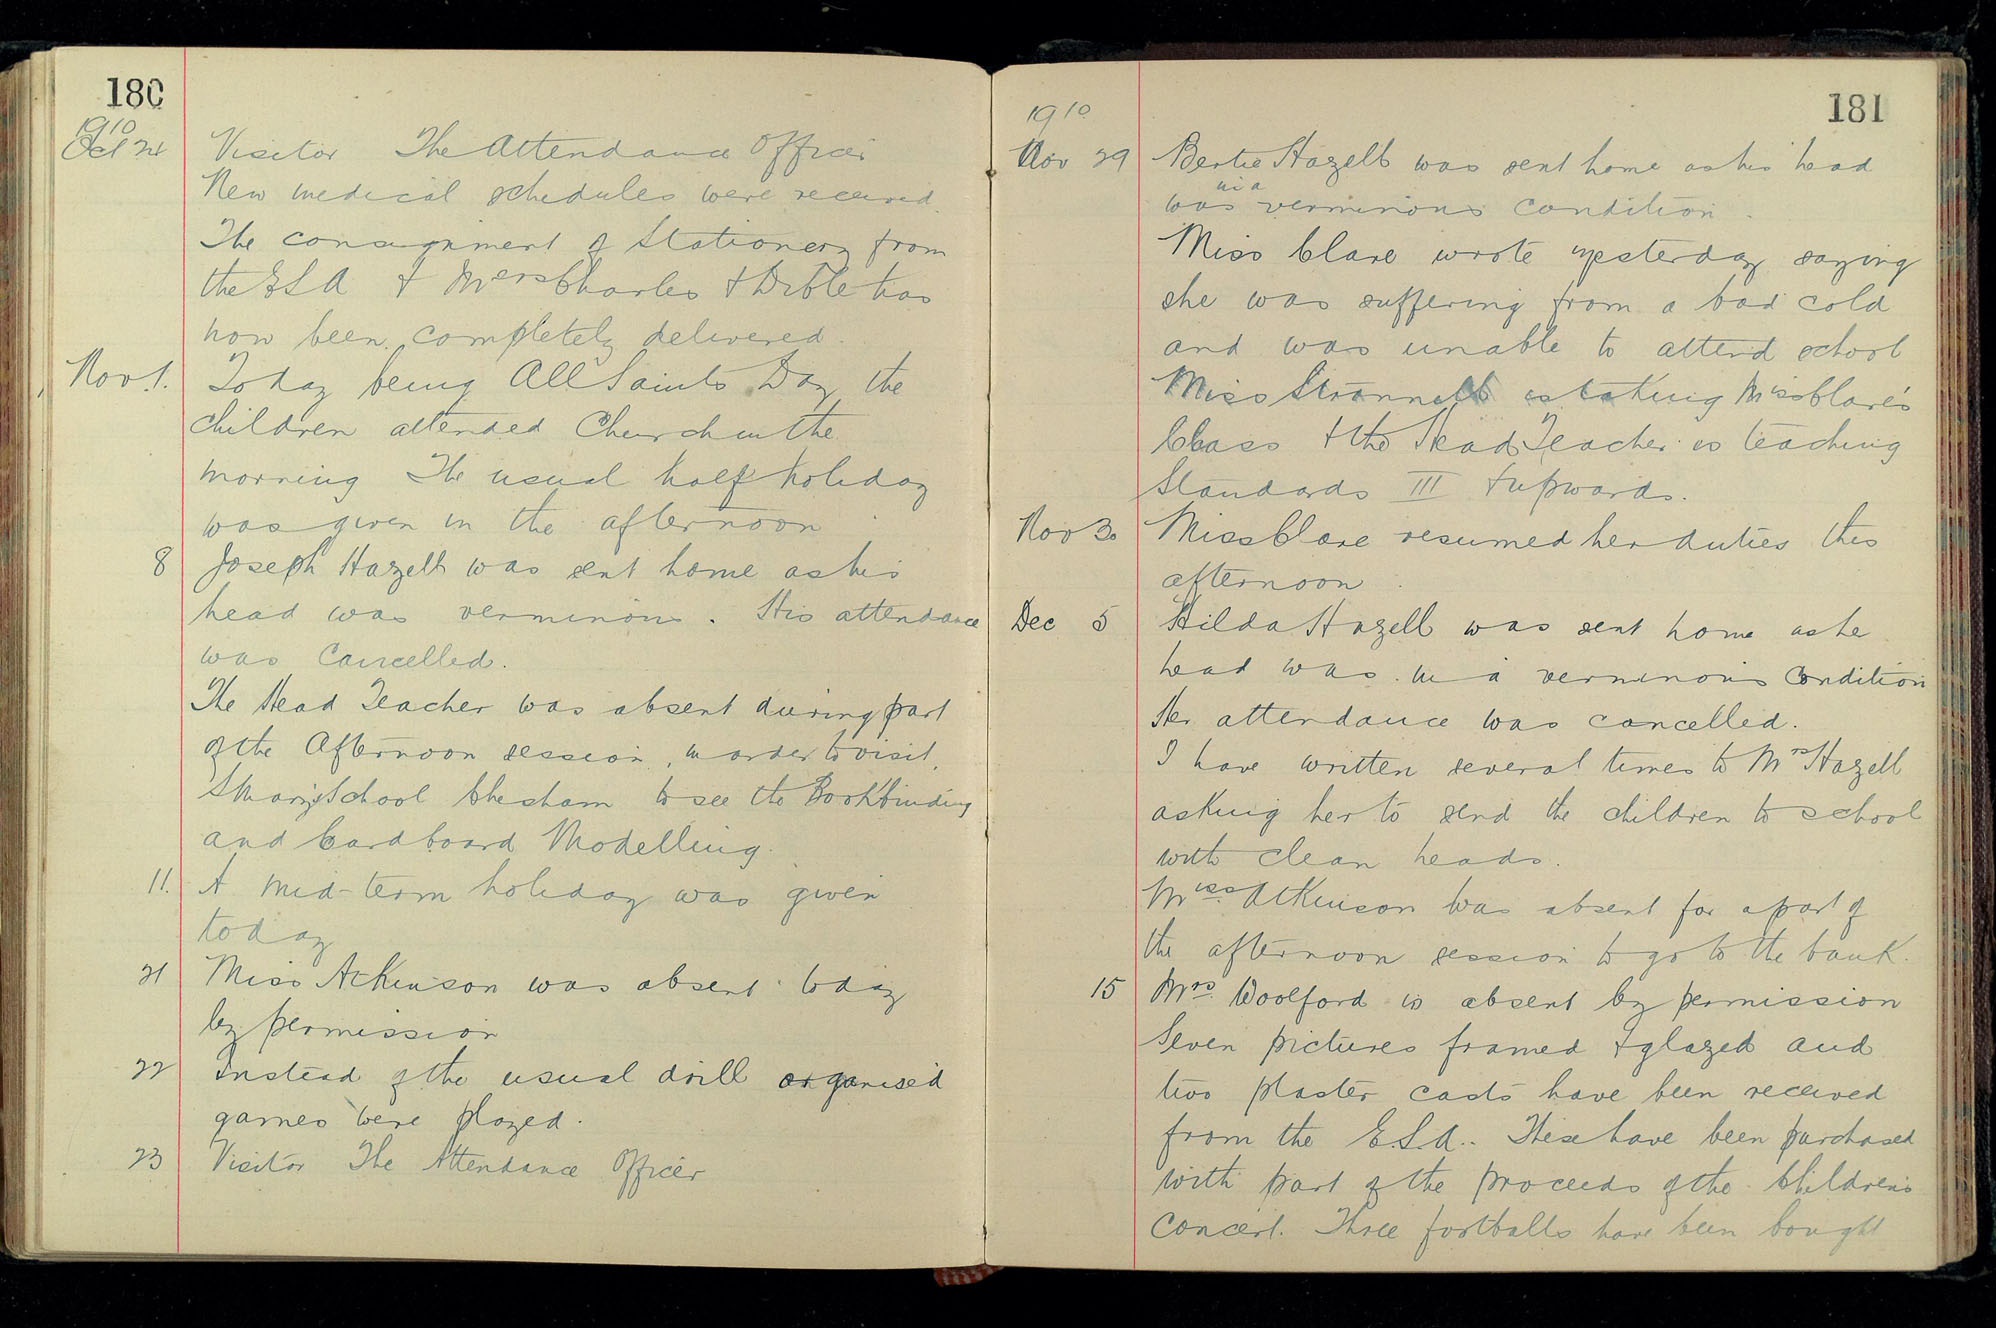 180
1910
Oct 24 Visitor The Attendance Officer
New medical schedules were received.
The consignment of Stationery from
the ESA & Messrs Charles & Dible has
now been completely delivered.
Nov 1. Today being All Saints Day the
children attended Church in the
morning The usual half holiday
was given in the afternoon
8 Joseph Hazell was sent home as his
head was verminous. His attendance
was cancelled.
The Head Teacher was absent during part
of the Afternoon session, in order to visit,
St Mary's School Chesham to see the Bookbinding
and Cardboard Modelling.
11. A mid-term holiday was given
today
21 Miss Atkinson was absent today
by permission
22 Instead of the usual drill organised
games were played.
23 Visitor The Attendance Officer
181
1910
Nov 29 Bertie Hazell was sent home as his head
was in a verminous condition.
Miss Clare wrote yesterday saying
she was suffering from a bad cold
and was unable to attend school
Miss is taking Miss Clare's
Class & the Head Teacher is teaching
Standards III & upwards.
Nov 30 Miss Clare resumed her duties this
afternoon.
Dec 5 Hilda Hazell was sent home as he
head was in a verminous condition
Her attendance was cancelled.
I have written several times to Mrs Hazell
asking her to send the children to school
with clean heads.
Miss Atkinson was absent for a part of
the afternoon session to go to the bank.
15 Mrs. Woolford is absent by permission
Seven pictures framed & glazed and
two plaster casts have been received
from the E.S.A.. These have been purchased
with part of the proceeds of the Children's
Concert. Three footballs have been bought